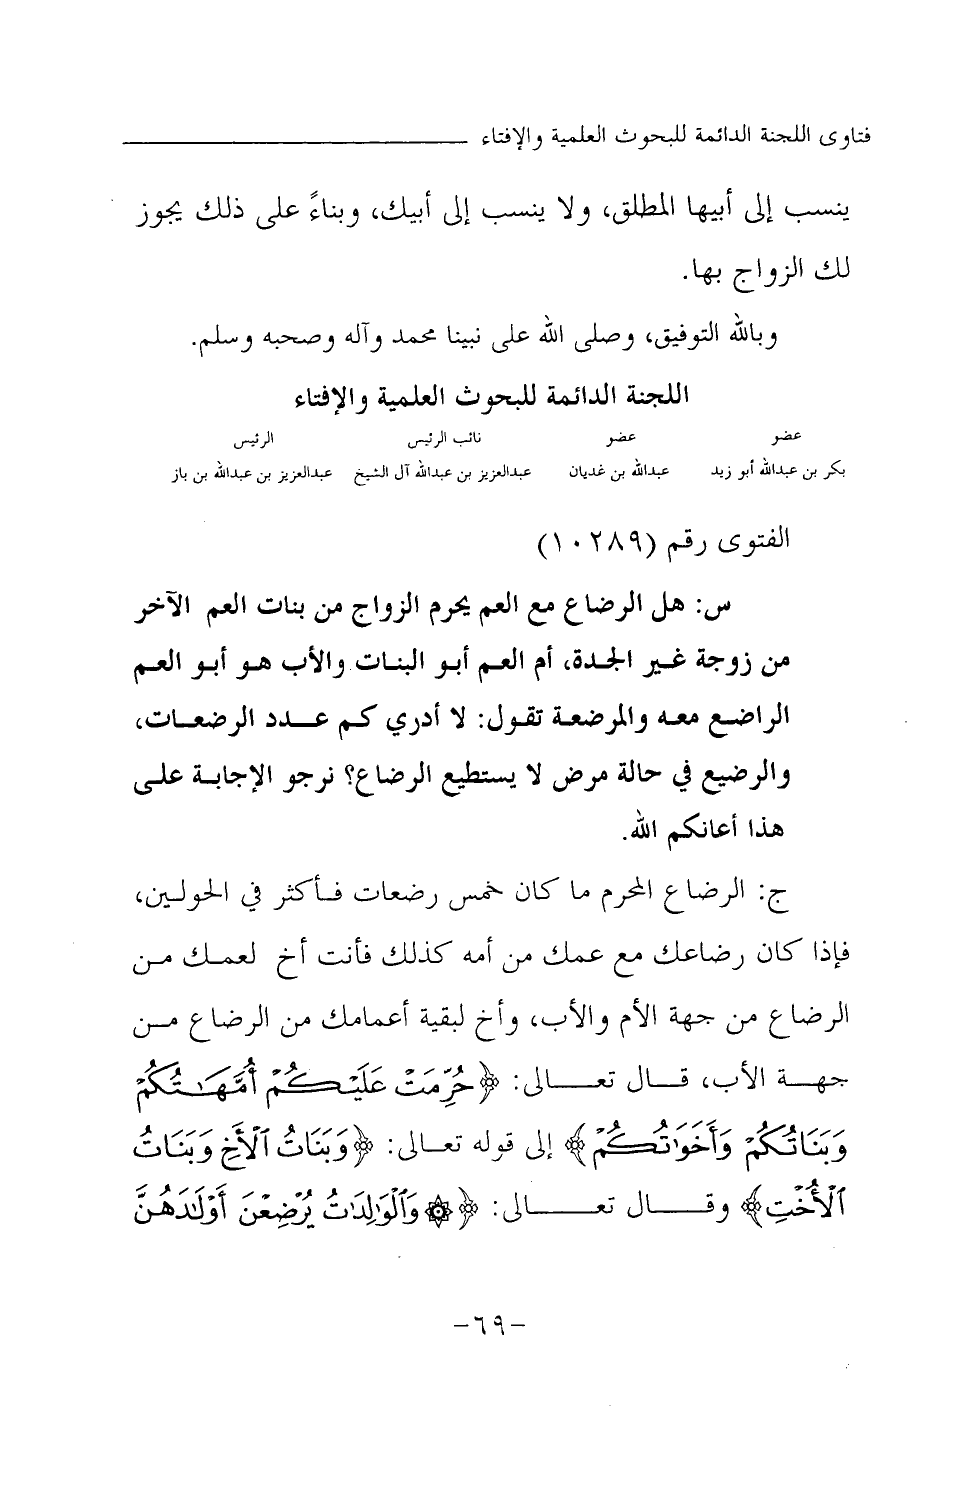 فتاوى اللجنة الدائمة للبحوث العلمية والإفتاء
ينسب إلى أبيها المطلق، ولا ينسب إلى أبيك، وبناءً على ذلك يجوز
لك الزواج بها.
وبالله التوفيق، وصلى الله على نبينا محمد وآله وصحبه وسلم.
اللجنة الدائمة للبحوث العلمية والإفتاء
عضو عضو نائب الرئيس الرئيس
بكر بن عبدالله أبو زيد عبدالله بن غديان عبدالعزيز بن عبدالله آل الشيخ عبدالعزيز بن عبدالله بن باز
الفتوى رقم (١٠٢٨٩)
س: هل الرضاع مع العم يحرم الزواج من بنات العم الآخر
من زوجة غير الجدة، أم العم أبو البنات والأب هو أبو العم
الراضع معه والمرضعة تقول: لا أدري كم عدد الرضعات،
والرضيع في حالة مرض لا يستطيع الرضاع؟ نرجو الإجابة على
هذا أعانكم الله.
ج: الرضاع المحرم ما كان خمس رضعات فأكثر في الحولين،
فإذا كان رضاعك مع عمك من أمه كذلك فأنت أخ لعمك من
الرضاع من جهة الأم والأب، وأخ لبقية أعمامك من الرضاع من
جهة الأب، قال تعالى: ﴿حُرِّمَتْ عَلَيْكُمْ أُمَّهَٰتُكُمْ
وَبَنَاتُكُمْ وَأَخَوَٰتُكُمْ﴾ إلى قوله تعالى: ﴿وَبَنَاتُ ٱلْأَخِ وَبَنَاتُ
ٱلْأُخْتِ﴾ وقال تعالى: ﴿۞ وَٱلْوَٰلِدَٰتُ يُرْضِعْنَ أَوْلَٰدَهُنَّ
-٦٩-